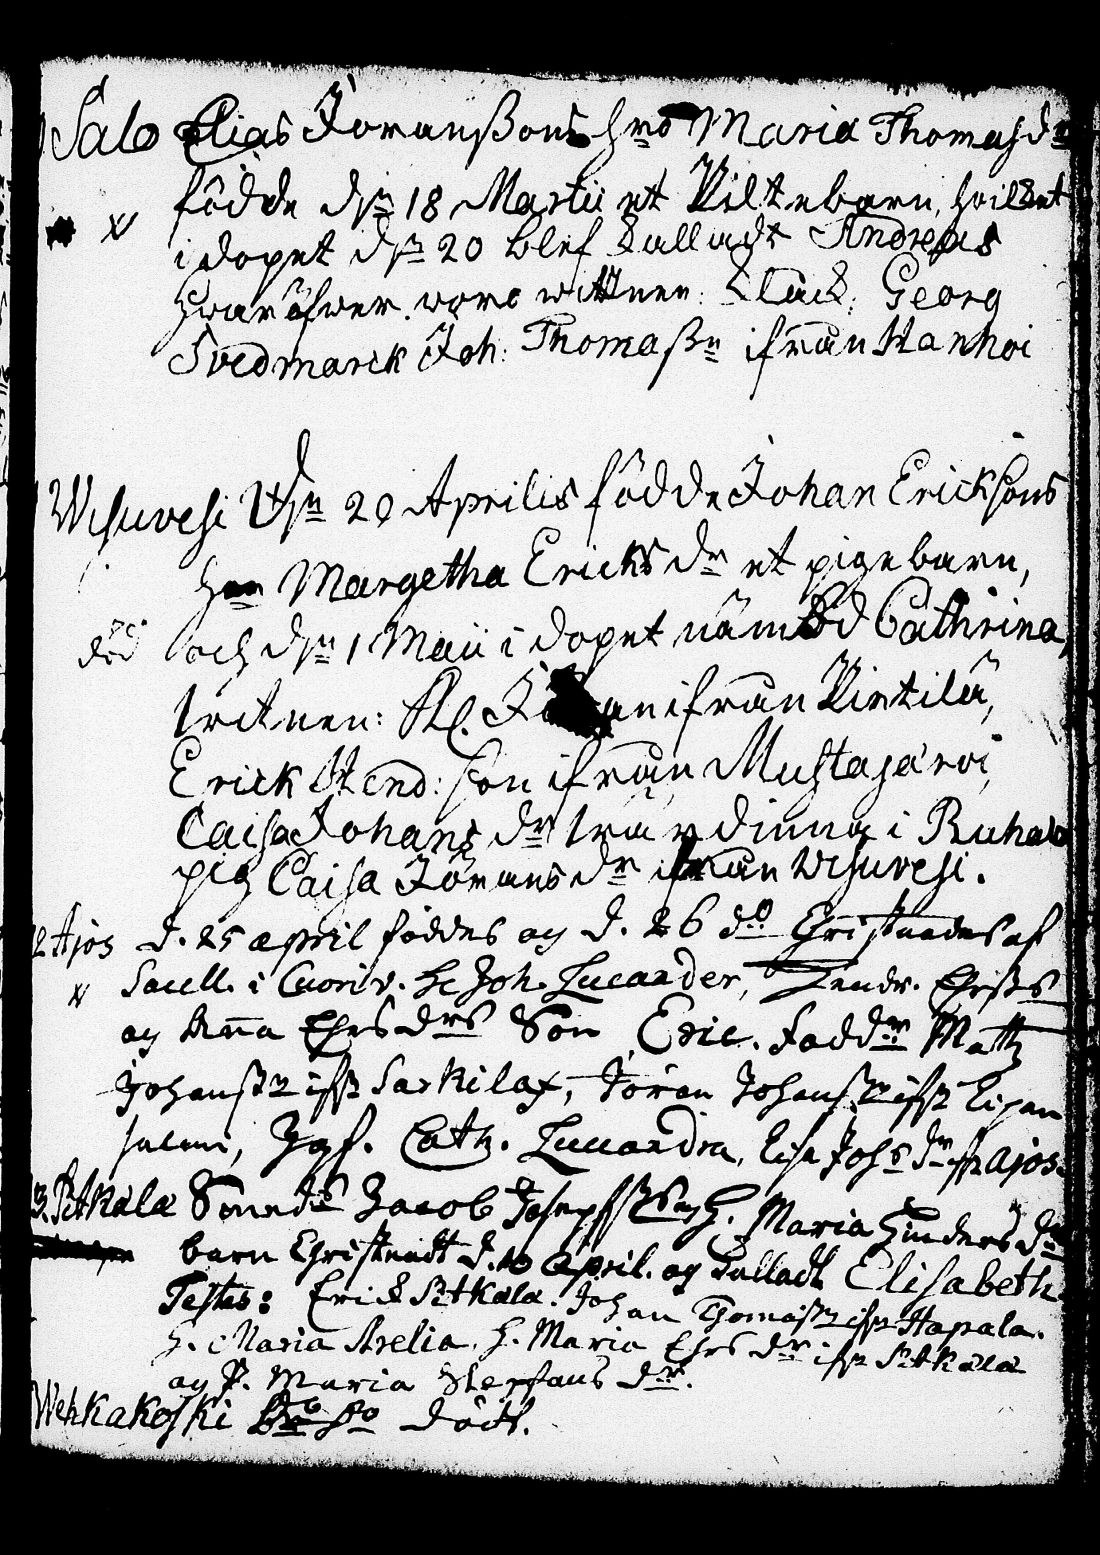 Salo Elias Joranßons hro Maria Thomasdr
födde dn 18 Martii et Piltebarn, hvilket
x i dopet dn 20 blef kalladt Andreas
hwaröfwer woro wittnen: Klåck: Georg
Svedmarck Joh: Thomaßn ifrån Hanhoi
Wesuvesi Dn 29 Aprilis födde Johan Ericksons
hro Margetha Ericksdr et pigebarn,
död och dn 1 Maii i dopet nämbd Cathrina,
witnen: Johan ifrån Pirtilä,
Erick Hend: son ifrån Mustajärvi,
Caisa Johans dr wärdinna i Ruhala
pig Caisa Jörans dr ifrån Wesuvesi.
2 Ajos d. 25 april föddes og d. 26 do Christnades af
x Sacell. i Cuoriv. He Joh. Lucander, Hendr. Ehrßs
og Anna Ehrs drs Son Eric. Faddrar Matts
Johanßn ifr Saxkilax, Jöran Johanßn ifr Lipen
salmi, Jgf. Cath. Lucandra, Lisa Johs dr ifr Ajos
3. Pitkälä Jacob Josephßs og H. Maria Hinders drs
barn Christnadt d. 10 April. og Kalladt Elisabeth.
Testes: Erick Pitkälä. Johan Thomaßn ifr Hapala.
H. Maria Arelia, H. Maria Ehrs dr ifr Pitkälä
og P. Maria Steffans dr.
Wehkakoski dödt.